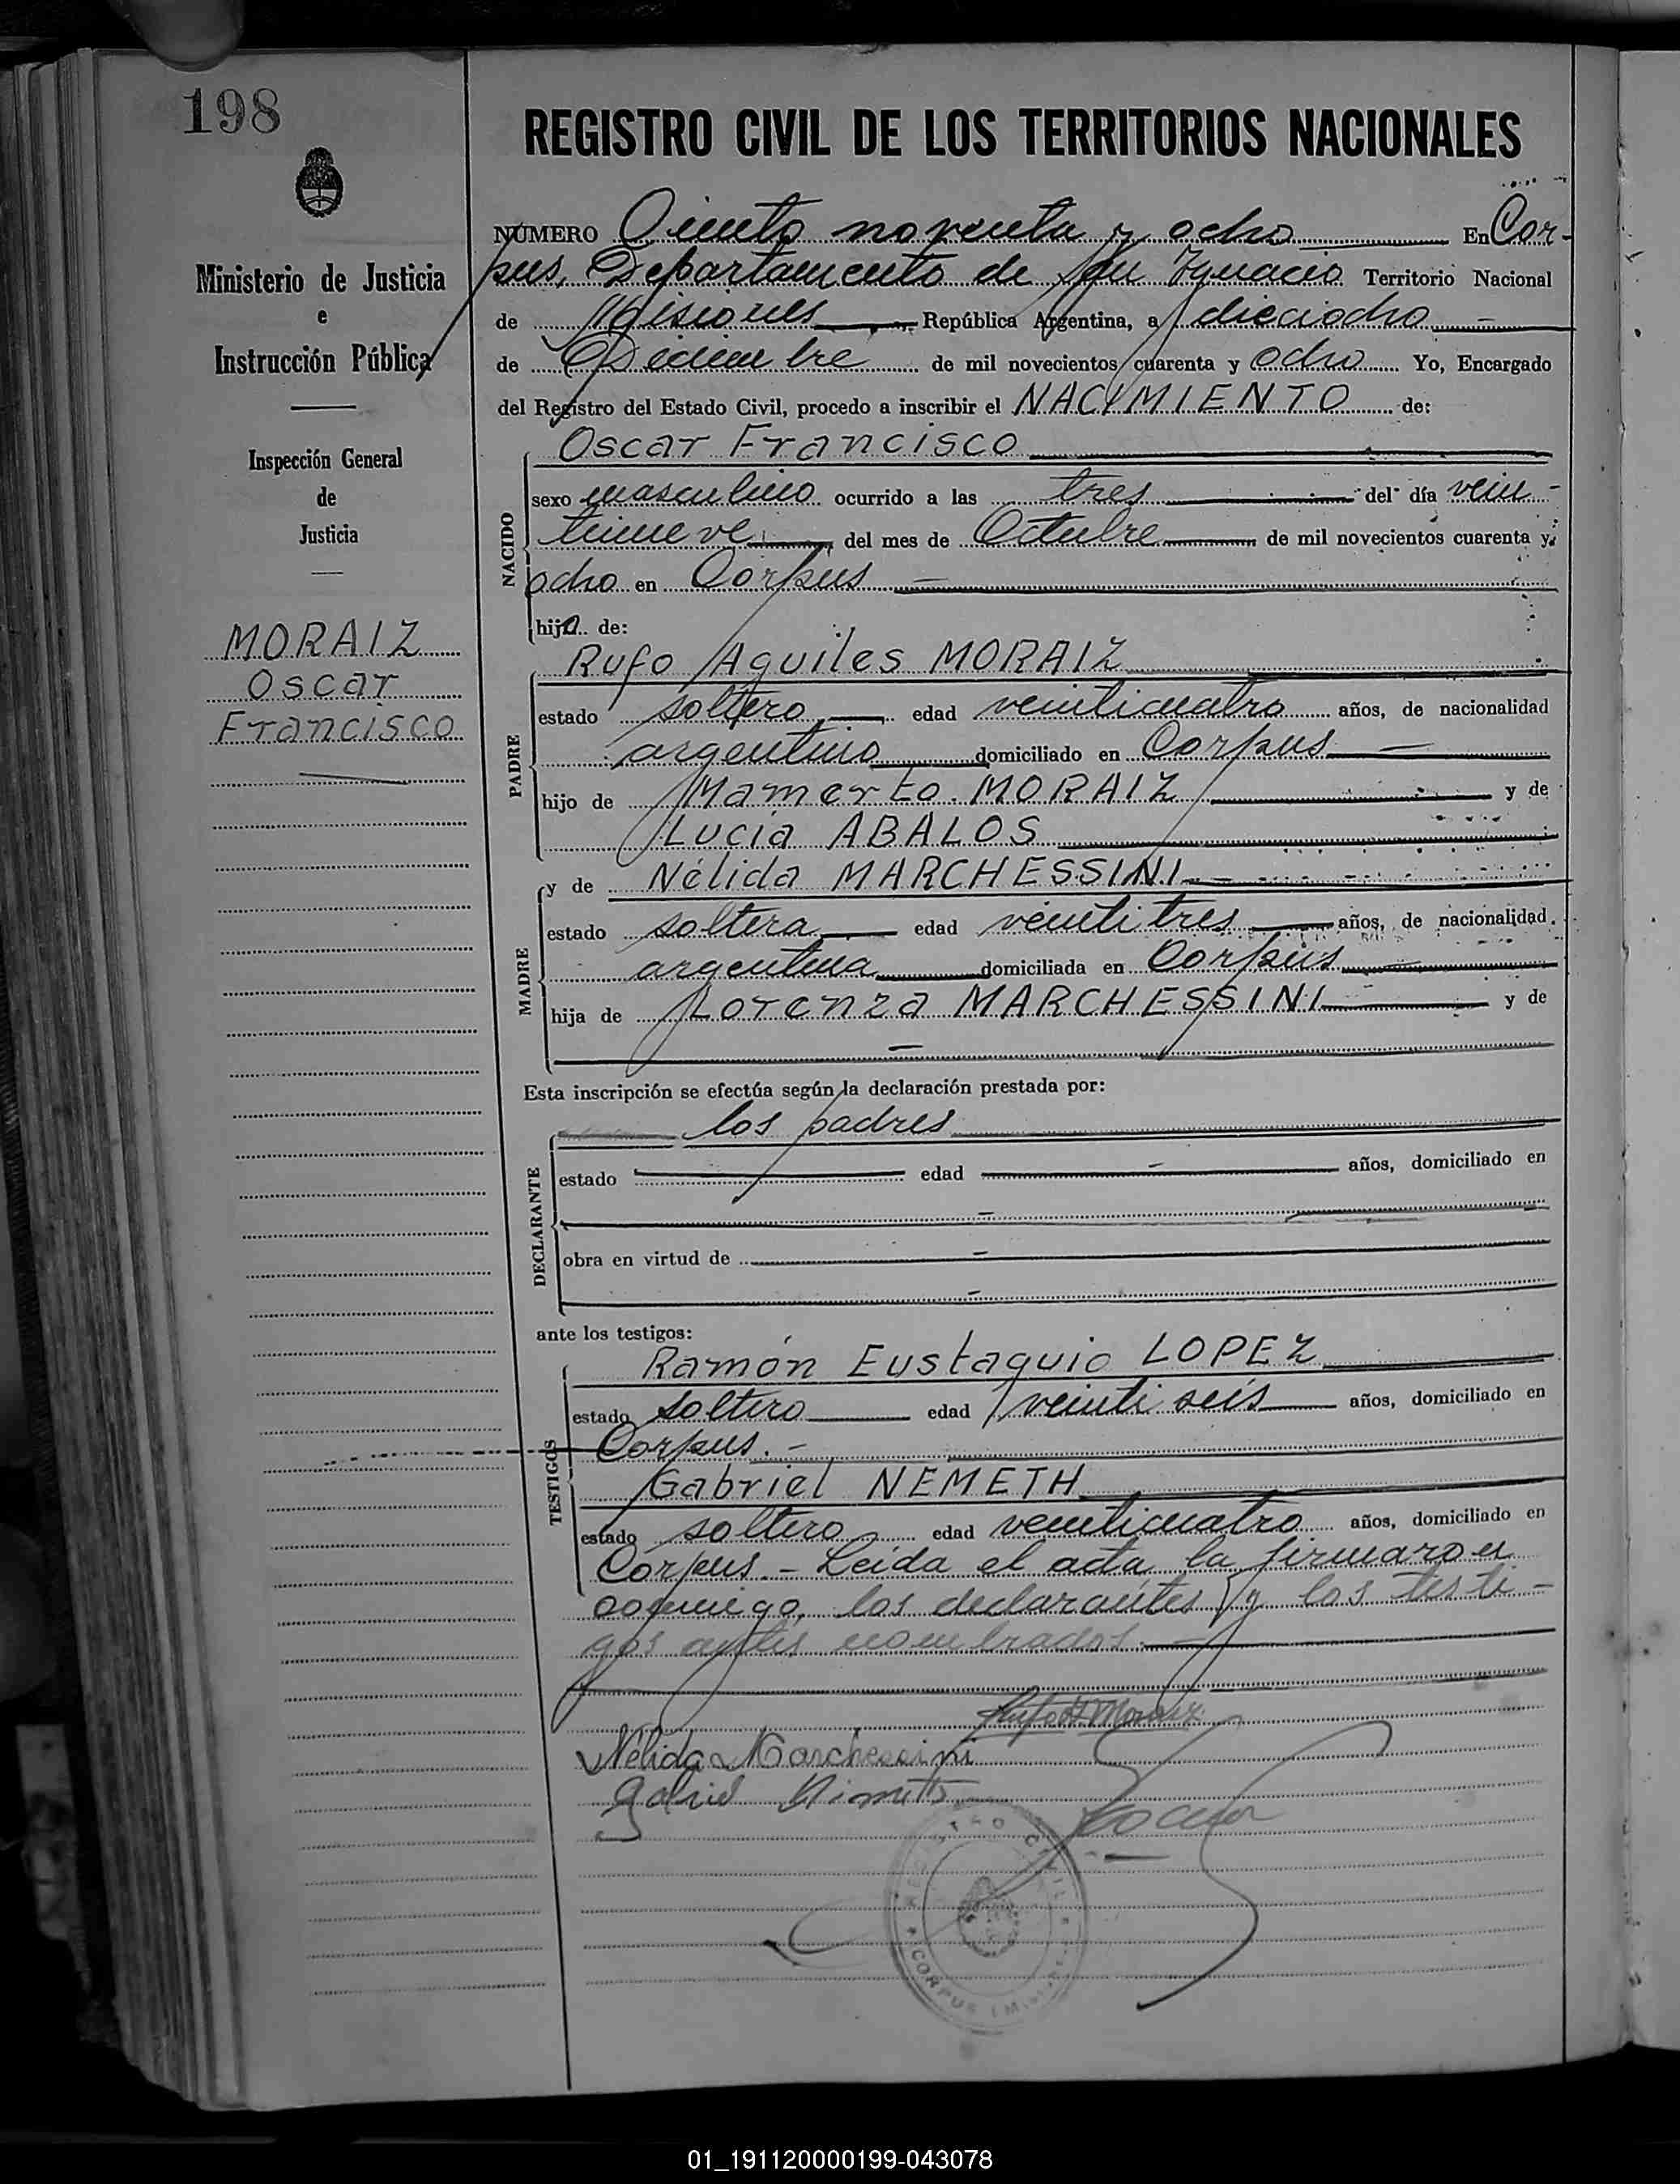 198
Ministerio de Justicia
e
Instrucción Pública
Inspección General
de
Justicia
MORAIZ
Oscar
Francisco
REGISTRO CIVIL DE LOS TERRITORIOS NACIONALES
NÚMERO Ciento noventa y ocho En Cor-
pus, Departamento de San Ignacio Territorio Nacional
de Misiones República Argentina, a dieciocho
de Diciembre de mil novecientos cuarenta y ocho Yo, Encargado
del Registro del Estado Civil, procedo a inscribir el NACIMIENTO de:
NACIDO
Oscar Francisco
sexo masculino ocurrido a las tres del día vein-
tinueve del mes de Octubre de mil novecientos cuarenta y
ocho en Corpus
hijo de:
PADRE
Rufo Aquiles MORAIZ
estado soltero edad veinticuatro años, de nacionalidad
argentino domiciliado en Corpus
hijo de Mamerto MORAIZ y de
Lucía ABALOS
MADRE
y de Nélida MARCHESSINI
estado soltera edad veintitres años, de nacionalidad
argentina domiciliada en Corpus
hija de Lorenza MARCHESSINI y de
Esta inscripción se efectúa según la declaración prestada por:
DECLARANTE
los padres
estado edad años, domiciliado en
obra en virtud de
ante los testigos:
TESTIGOS
Ramón Eustaquio LOPEZ
estado soltero edad veintiseis años, domiciliado en
Corpus.-
Gabriel NEMETH
estado soltero edad veinticuatro años, domiciliado en
Corpus.- Leída el acta la firmaron
conmigo, los declarantes y los testi-
gos antes nombrados.
Rufo A Moraiz
Nélida Marchessini
REGISTRO CIVIL
CORPUS
01_191120000199-043078